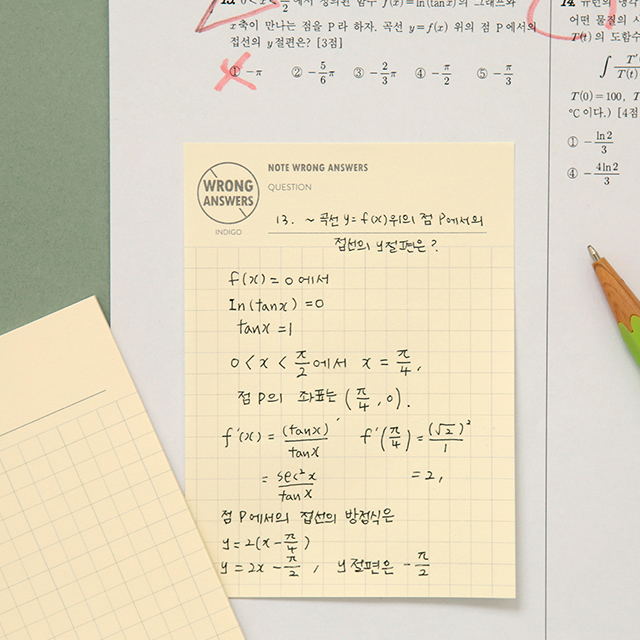 13. 0 < x < π/2 에서 정의된 함수 f(x)=ln(tan x)의 그래프와
x축이 만나는 점을 P라 하자. 곡선 y=f(x) 위의 점 P에서의
접선의 y절편은? [3점]
① −π ② −5/6π ③ −2/3π ④ −π/2 ⑤ −π/3
14.
어떤 물질의
T(t)의 도함수
T(0)=100,
℃이다.) [4점
① −ln2/3
④ −4ln2/3
WRONG
ANSWERS
INDIGO
NOTE WRONG ANSWERS
QUESTION
13. ~ 곡선 y=f(x)위의 점 P에서의
접선의 y절편은?
f(x)=0에서
In(tanx)=0
tanx=1
0<x<π/2에서 x=π/4,
점 P의 좌표는 (π/4, 0).
f'(x)=(tanx)'/tanx f'(π/4)=(√2)²/1
=sec²x/tanx =2,
점 P에서의 접선의 방정식은
y=2(x−π/4)
y=2x−π/2, y절편은 −π/2